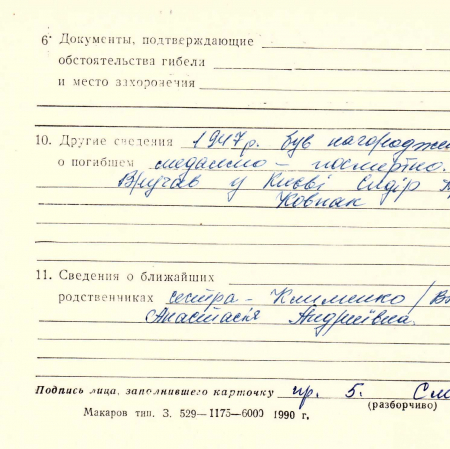 6· Документы, подтверждающие
обстоятельства гибели
и место захоронения
10. Другие сведения 1947 р. був нагородже
о погибшем медаллю – посмертно.
Вручав у Києві Сидір
Ковпак
11. Сведения о ближайших
родственниках сестра – Клименко /В
Анастасія Андріївна.
Подпись лица, заполнившего карточку пр. 5.
(разборчиво)
Макаров тип. З. 529—1175—6000 1990 г.